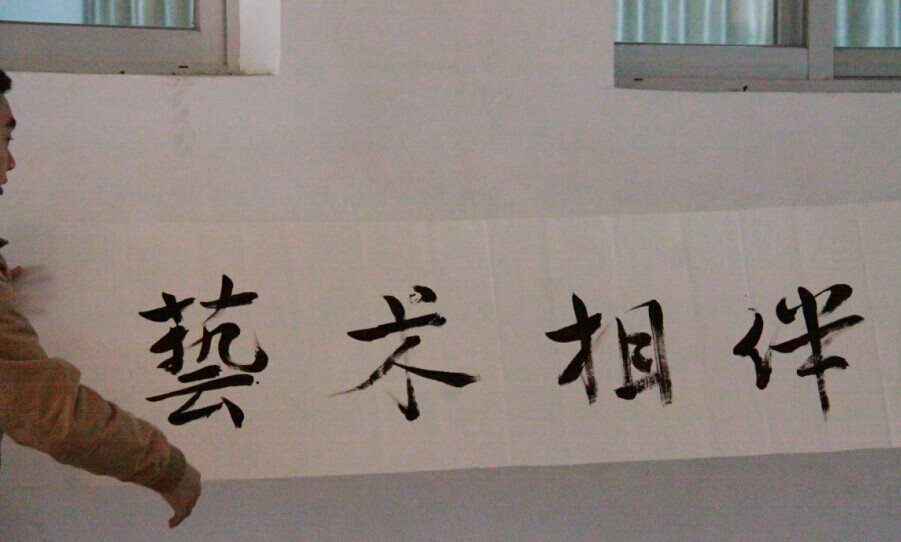 藝术相伴